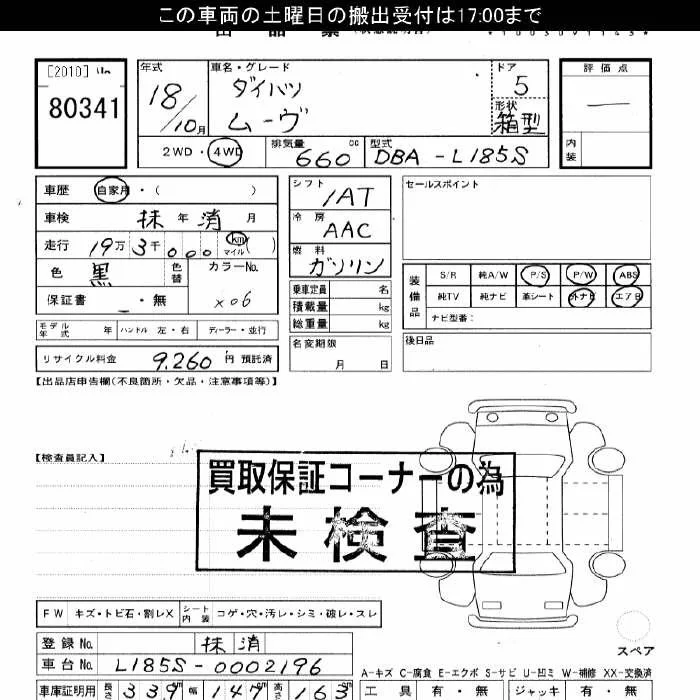 この車両の土曜日の搬出受付は17:00まで
[2010]
80341
年式 車名・グレード ドア 評価点
18/10月 ダイハツ 5
ムーヴ 形状 箱型
2WD・4WD 排気量 660 cc 型式 DBA-L185S 内装
車歴 自家用・( )
シフト 1AT
セールスポイント
車検 抹 年 消 月
冷房 AAC
走行 19万 3千 000 km マイル ( )
燃料 ガソリン
色 黒 色替 カラーNo. X06
保証書 ・無
乗車定員 名
積載量 kg
総重量 kg
装備品 S/R 純A/W P/S P/W ABS
純TV 純ナビ 革シート 外ナビ エアB
ナビ型番:
モデル年式 年 ハンドル 左・右 ディーラー・並行
名変期限 月 日
後日品
リサイクル料金 9,260 円 預託済
【出品店申告欄(不良箇所・欠品・注意事項等)】
【検査員記入】
買取保証コーナーの為
未検査
FW キズ・トビ石・割レX シート内装 コゲ・穴・汚レ・シミ・破レ・スレ
登録No. 抹消
スペア
車台No. L185S-0002196
A-キズ C-腐食 E-エクボ S-サビ U-凹ミ W-補修 XX-交換済
車庫証明用 長さ 339 幅 147 高さ 163
工具 有・無 ジャッキ 有・無